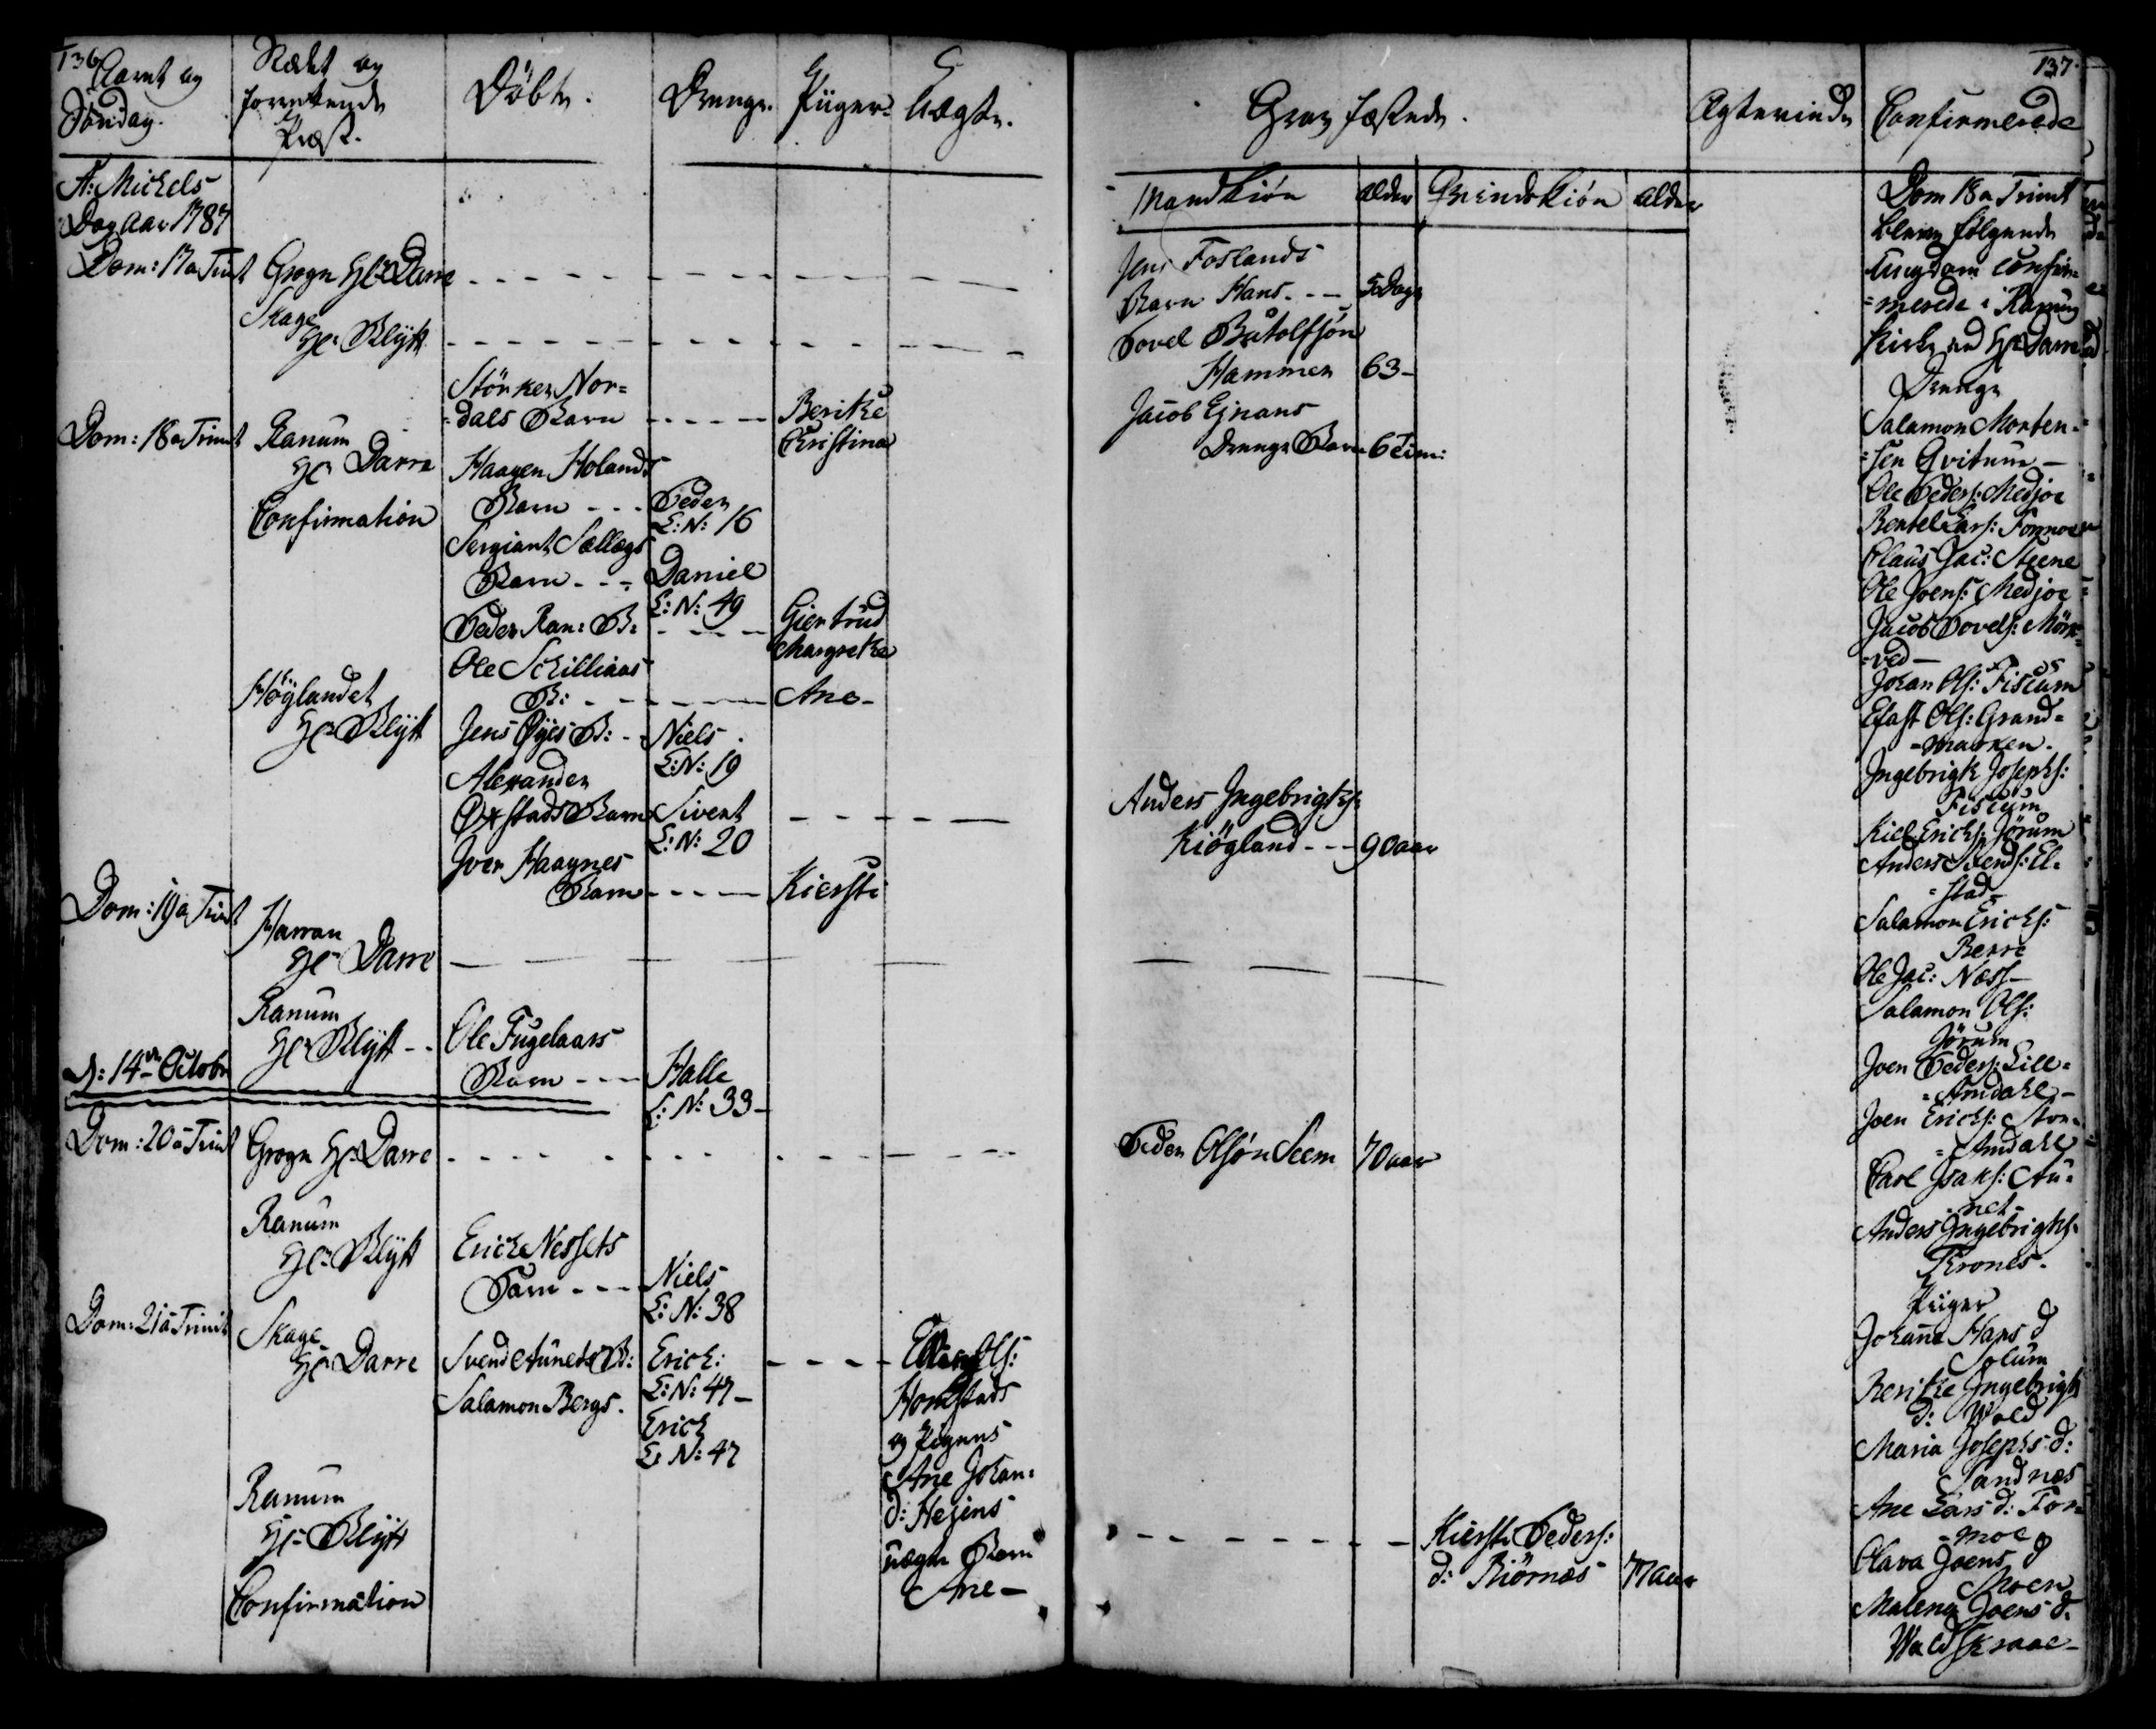 136
Aaret og
Søndag.
Stædet og
forrettende
Præst.
Döbte.
Drenge.
Piiger.
Uægte.
St: Michels
Dag Aar 1787
Dom: 17 a Trinit
Grogn Hr Darre
Skage
Hr Blytt
Dom: 18 a Trinit
Ranum
Hr Darre
Confirmation
Störker Nor=
=dals Barn
Beritke
Christina
Haagen Holands
Barn
Peder
L: N: 16
Sergiant Sællægs
Barn
Daniel
L: N: 49
Peder Ran: B:
Giertrud
Margretke
Höylandet
Hr Blytt
Ole Schilliaas
B:
Ane
Jens Øyes B:
Niels
L: N: 19
Alexander
Øxstads Barn
Sivert
L: N: 20
Iver Haagnes
Barn
Kiersti
Dom: 19 a Trinit
Harran
Hr Darre
Ranum
Hr Blytt
Ole Fugelaars
Barn
Halle
L: N: 33
d: 14de Octobr
Dom: 20 a Trinit
Grogn Hr Darre
Ranum
Hr Blytt
Erich Nessets
Barn
Niels
L: N: 38
Dom: 21 a Trinit
Skage
Hr Darre
Svend Aunets B:
Erich:
L: N: 47
Salamon Bergs
Erich
L: N: 47
Ols:
Homstads
og Pigens
Ane Johan:
d: Hejens
uægte Barn
Ane
Ranum
Hr Blytt
Confirmation
137
Grav fæstede.
Ægteviede
Confirmerede
Mandkiön
alder
Qvindekiön
alder
Jens Foslands
Barn Hans
5 Dage
Povel Botolfsön
Hammer
63
Jacob Ejnans
Drenge Barn
6 Tim:
Anders Ingebrigts:
Kiögland
90 aar
Peder Olsön Seem
70 aar
Kiersti Peders:
d: Biörnæs
77 aar
Dom 18 a Trinit
bleven følgende
Ungdom confir=
=merede i Ranum
Kirke ved Hr Darre
Drenge
Salamon Morten=
=sen Qvitum
Ole Peders: Medjoe
Bertel Lars: Formoe
Claus Jac: Steene
Ole Joens: Medjoe
Jacob Povels: Mörk=
=ved
Johan Ols: Fiscum
Efast Ols: Grand=
=marken.
Ingebrigt Josephs:
Fiscum
Kiel Erichs: Jörum
Anders Svends: El=
=stad
Salamon Erichs:
Berre
Ole Jac: Næss
Salamon Ols:
Jörum
Joen Peders: Lille=
=Amdahl
Joen Erichs: Stor=
=Amdahl
Carl Isaks: Au=
=net
Anders Ingebrigts:
Krones.
Piiger
Johanne Hans d
Solum
Beritke Ingebrigts
d: Wold
Maria Josephs d:
Sandnæs
Ane Lars d: For=
=moe
Olava Joens d
Moen
Malena Joens d:
Wald